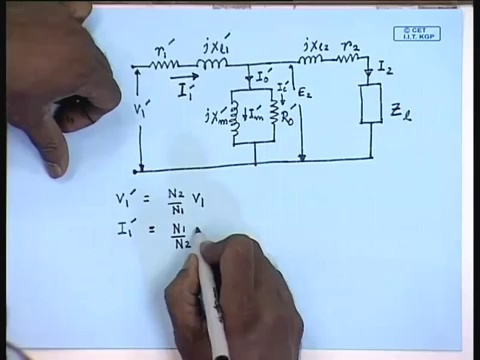 © CET
I.I.T. KGP
r₁′ jxₗ₁′ jxₗ₂ r₂
I₁′ I₀′ I₂
V₁′ jxₘ′ Iₘ′ Iᵢ′ R₀′ E₂ Zₗ
V₁′ = N₂/N₁ V₁
I₁′ = N₁/N₂